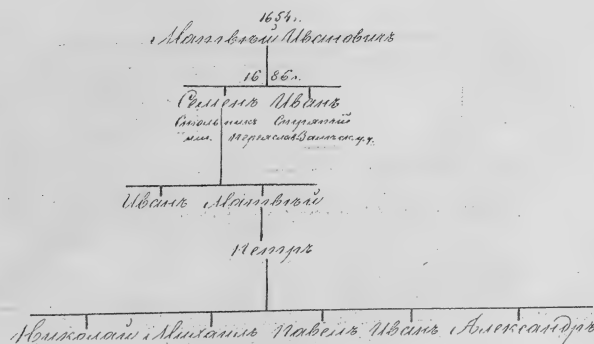 1654 г.
Матвѣй Ивановичъ
1686 г.
Семенъ Иванъ
Стольникъ Стряпчій
им. Переяслав. Залѣск. у.
Иванъ Матвѣй
Петръ
Николай Михаилъ Павелъ Иванъ Александръ